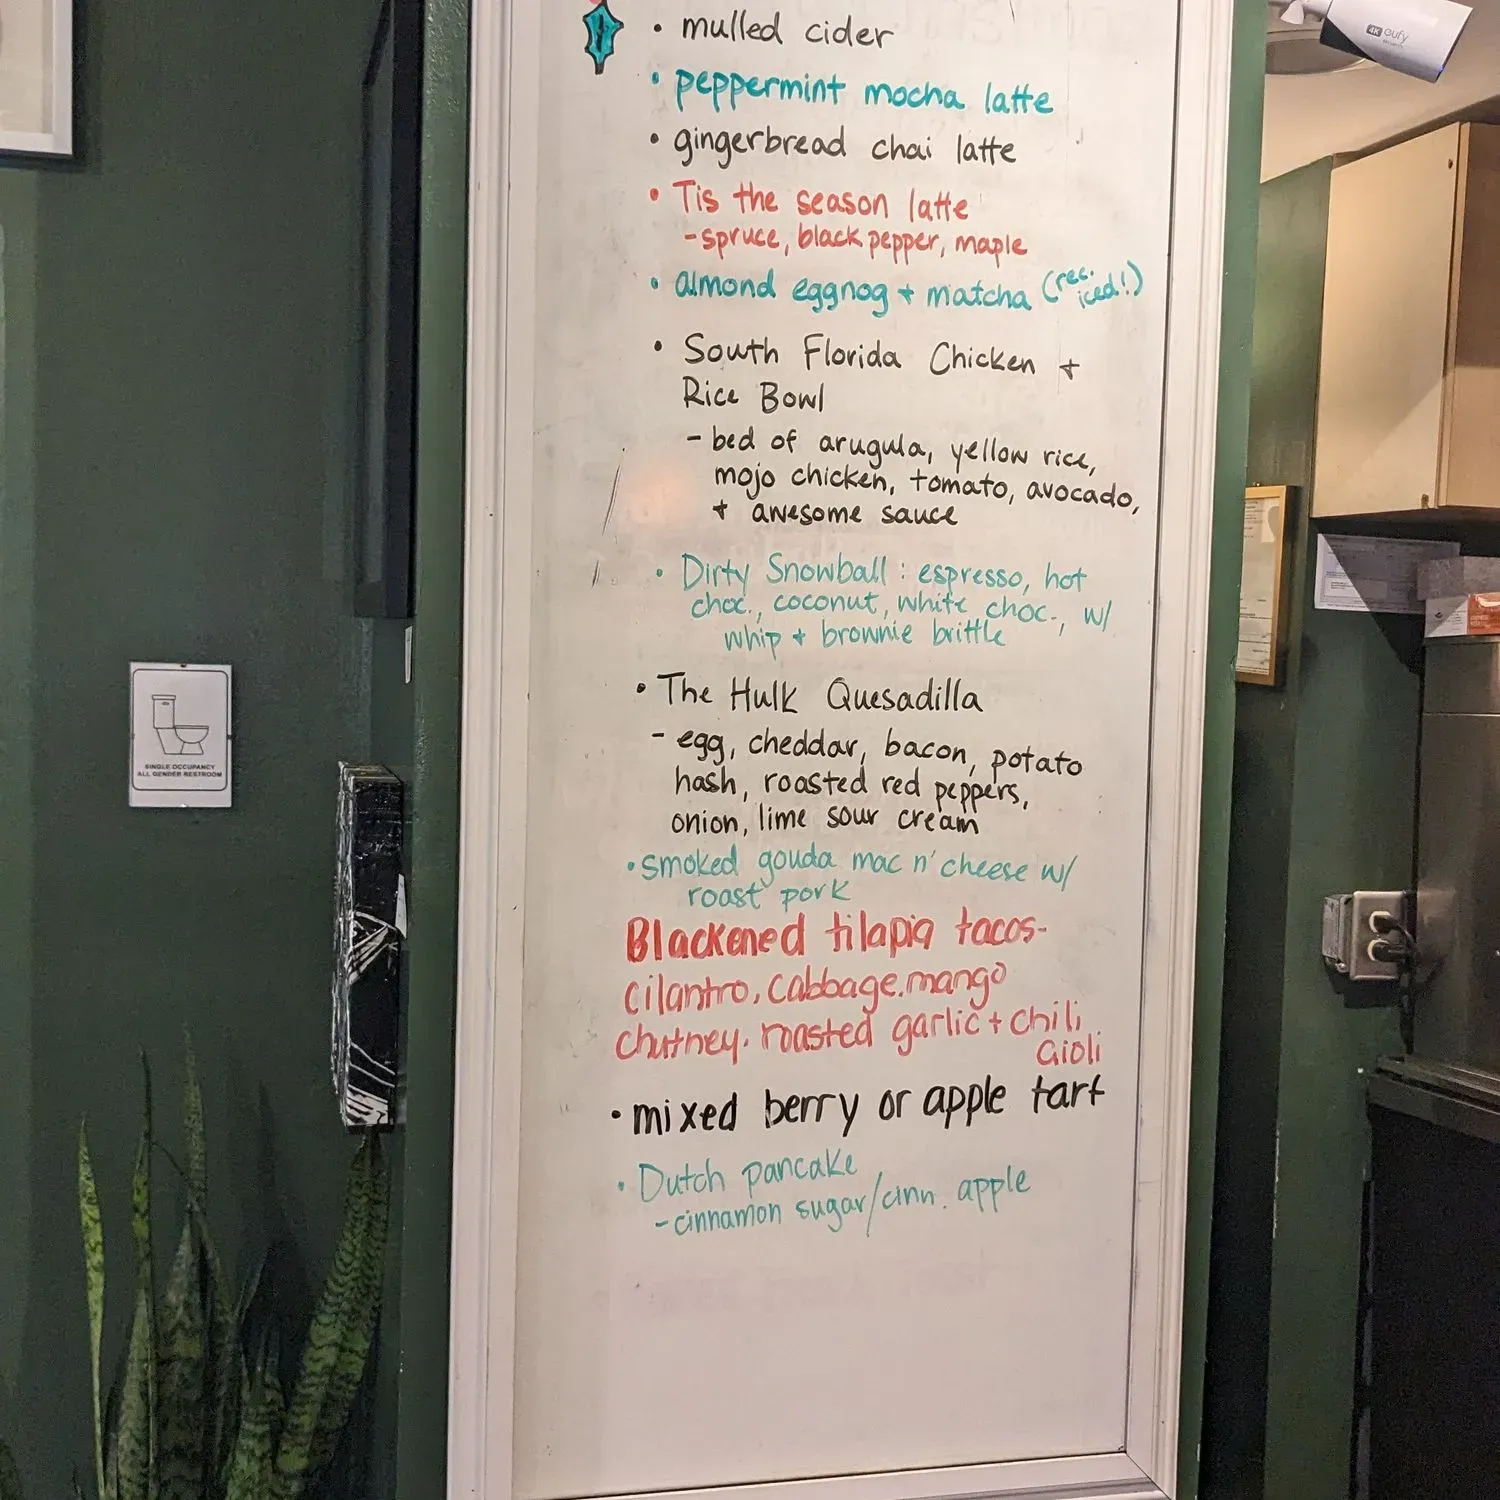 • mulled cider
• peppermint mocha latte
• gingerbread chai latte
• Tis the season latte
- spruce, black pepper, maple
• almond eggnog + matcha (rec. iced!)
• South Florida Chicken +
Rice Bowl
- bed of arugula, yellow rice,
mojo chicken, tomato, avocado,
+ awesome sauce
• Dirty Snowball : espresso, hot
choc., coconut, white choc., w/
whip + brownie brittle
• The Hulk Quesadilla
- egg, cheddar, bacon, potato
hash, roasted red peppers,
onion, lime sour cream
• smoked gouda mac n' cheese w/
roast pork
Blackened tilapia tacos-
cilantro, cabbage. mango
chutney. roasted garlic + chili
aioli
• mixed berry or apple tart
• Dutch pancake
- cinnamon sugar/cinn. apple
SINGLE OCCUPANCY
ALL GENDER RESTROOM
4K eufy